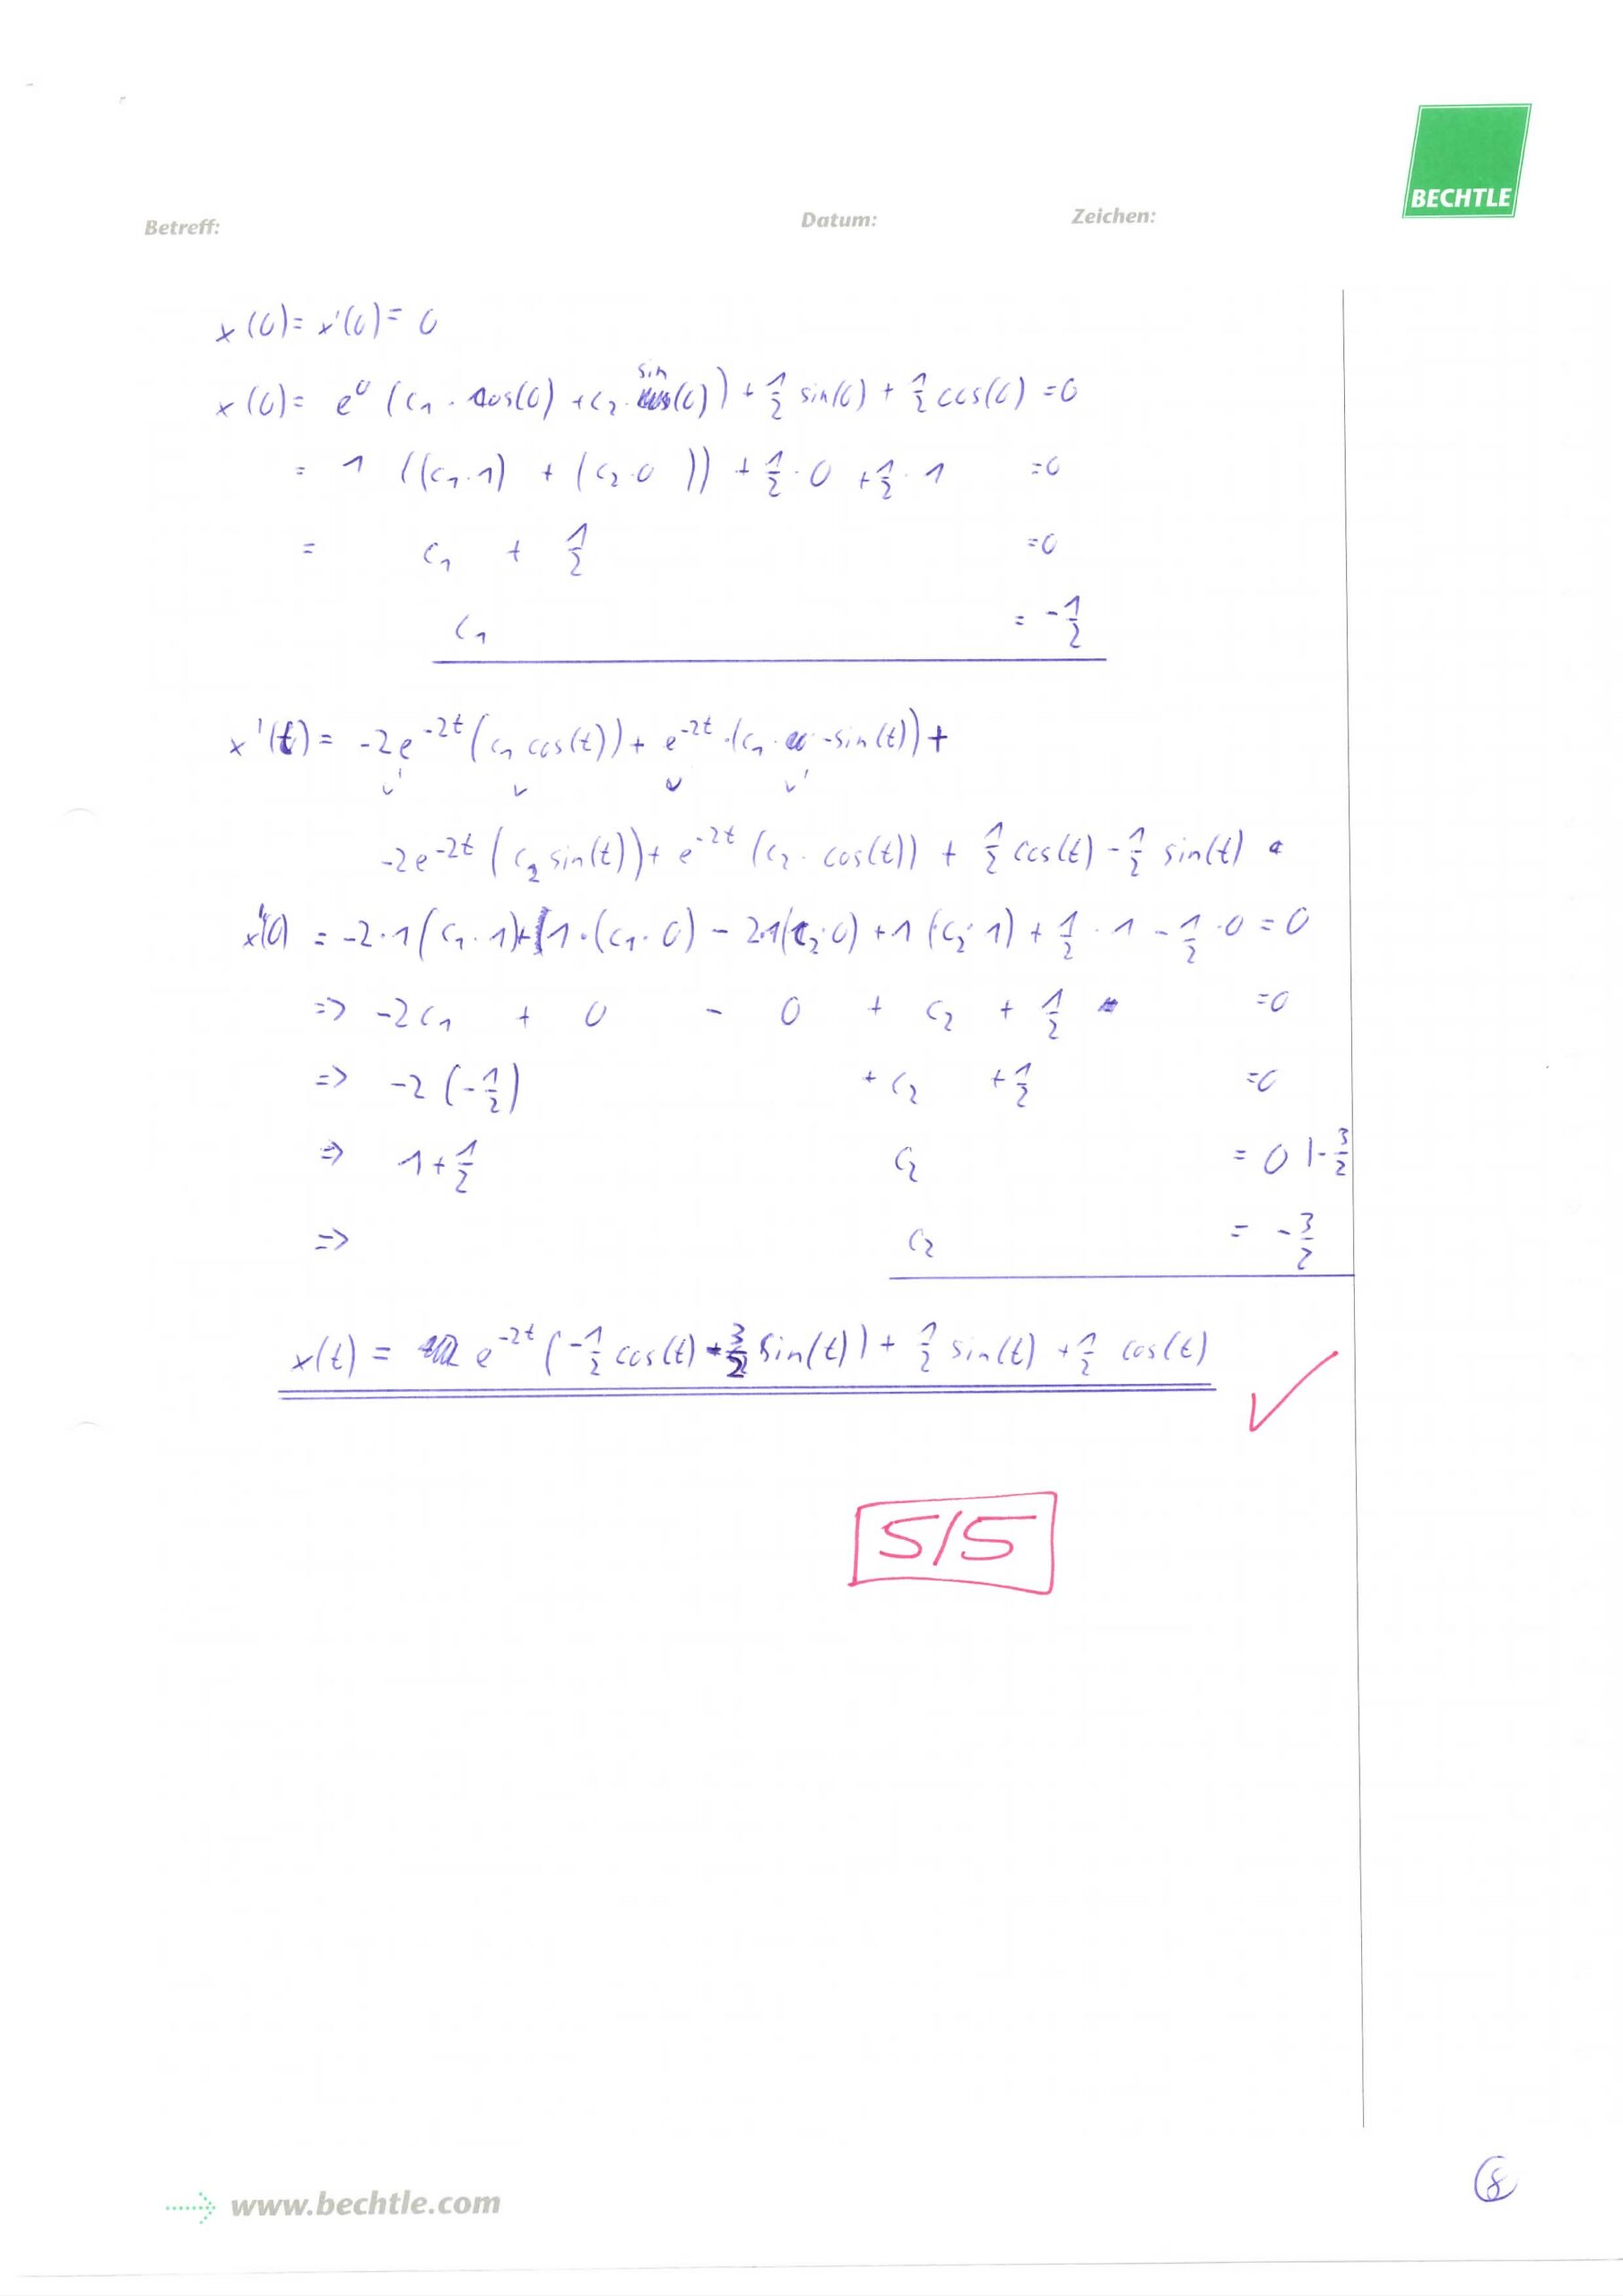 BECHTLE
Betreff: Datum: Zeichen:
x(0) = x'(0) = 0
x(0) = e⁰ (c₁ · cos(0) + c₂ · sin(0)) + 1/2 sin(0) + 1/2 cos(0) = 0
= 1 ((c₁ · 1) + (c₂ · 0)) + 1/2 · 0 + 1/2 · 1 = 0
= c₁ + 1/2 = 0
c₁ = -1/2
x'(t) = -2e^(-2t) (c₁ cos(t)) + e^(-2t) · (c₁ · -sin(t)) +
u' v u v'
-2e^(-2t) (c₂ sin(t)) + e^(-2t) (c₂ · cos(t)) + 1/2 cos(t) - 1/2 sin(t)
x'(0) = -2·1 (c₁ · 1) + 1 · (c₁ · 0) - 2·1(c₂ · 0) + 1 (c₂ · 1) + 1/2 · 1 - 1/2 · 0 = 0
=> -2c₁ + 0 - 0 + c₂ + 1/2 = 0
=> -2 (-1/2) + c₂ + 1/2 = 0
=> 1 + 1/2 c₂ = 0 | - 3/2
=> c₂ = - 3/2
x(t) = e^(-2t) (-1/2 cos(t) - 3/2 sin(t)) + 1/2 sin(t) + 1/2 cos(t) ✓
5/5
www.bechtle.com
8